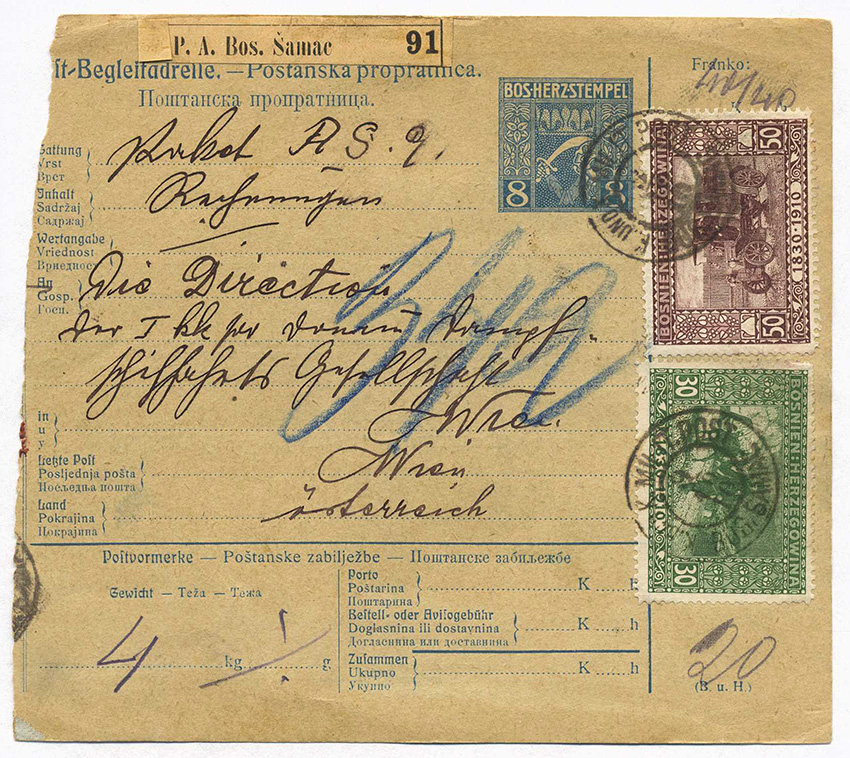 P. A. Bos. Šamac 91
st-Begleitadresse. — Poštanska propratnica.
Поштанска пропратница.
Franko:
BOSHERZSTEMPEL
8 8
Gattung
Vrst
Врст
Paket A S. 9.
Inhalt
Sadržaj
Садржај
Rechnungen
Wertangabe
Vriednost
Вриедност
An
Gosp.
Госп.
Die Direction
der I kk pr Donau Dampf-
schiffahrts Gesellschaft
Wien.
in
u
у
Letzte Post
Posljednja pošta
Посљедња пошта
Wien
Land
Pokrajina
Покрајина
österreich
50 BOSNIEN HERZEGOWINA 50
50 1830-1910 50
30 BOSNIEN HERZEGOWINA 30
30 1830-1910 30
MILIT. POST
Postvormerke — Poštanske zabilježbe — Поштанске забиљежбе
Gewicht — Teža — Тежа
4 kg g
Porto
Poštarina
Поштарина
K h
Bestell- oder Avisogebühr
Doglasnina ili dostavnina
Догласнина или доставнина
K h
Zusammen
Ukupno
Укупно
K h
20
(B. u. H.)